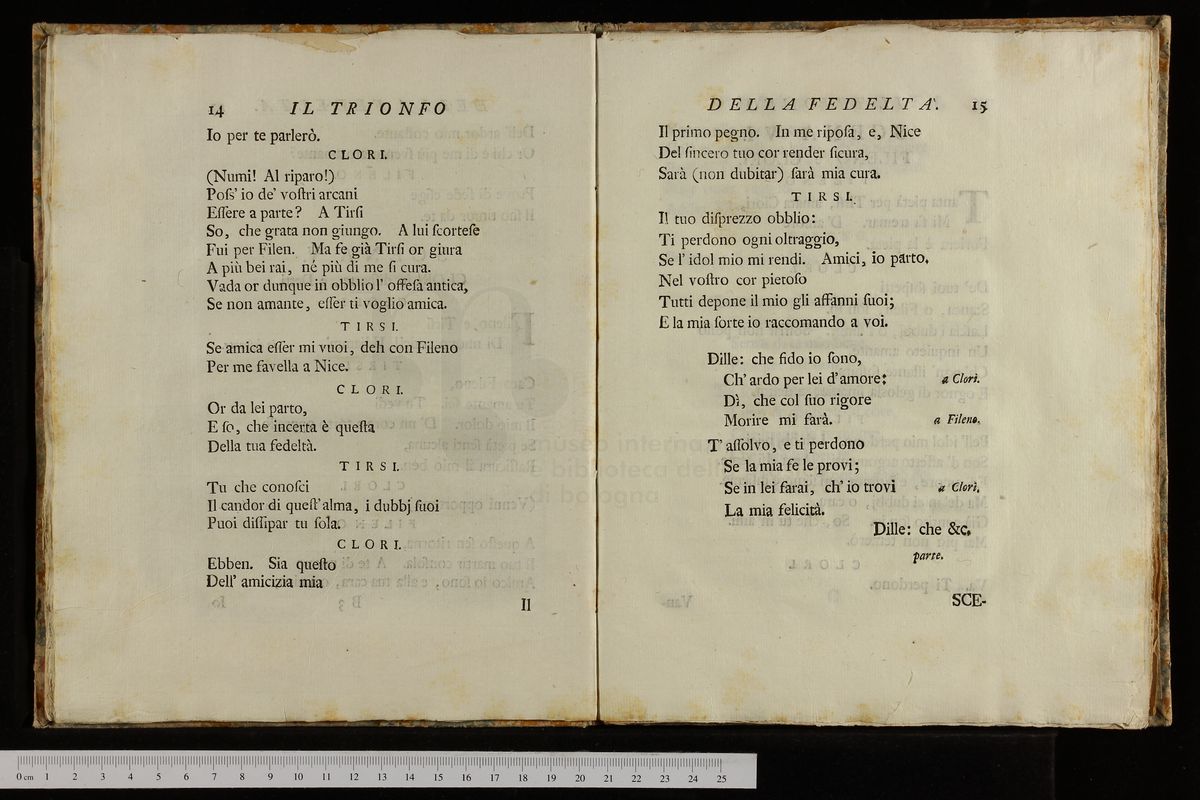 14 IL TRIONFO
Io per te parlerò.
CLORI.
(Numi! Al riparo!)
Poſs' io de' voſtri arcani
Eſſere a parte? A Tirſi
So, che grata non giungo. A lui ſcorteſe
Fui per Filen. Ma fe già Tirſi or giura
A più bei rai, né più di me ſi cura.
Vada or dunque in obblio l' offeſa antica,
Se non amante, eſſer ti voglio amica.
TIRSI.
Se amica eſſer mi vuoi, deh con Fileno
Per me favella a Nice.
CLORI.
Or da lei parto,
E ſo, che incerta è queſta
Della tua fedeltà.
TIRSI.
Tu che conoſci
Il candor di queſt' alma, i dubbj ſuoi
Puoi diſſipar tu ſola.
CLORI.
Ebben. Sia queſto
Dell' amicizia mia
Il
DELLA FEDELTA'. 15
Il primo pegno. In me ripoſa, e, Nice
Del ſincero tuo cor render ſicura,
Sarà (non dubitar) ſarà mia cura.
TIRSI.
Il tuo diſprezzo obblio:
Ti perdono ogni oltraggio,
Se l' idol mio mi rendi. Amici, io parto.
Nel voſtro cor pietoſo
Tutti depone il mio gli affanni ſuoi;
E la mia ſorte io raccomando a voi.
Dille: che fido io ſono,
Ch' ardo per lei d'amore: a Clori.
Dì, che col ſuo rigore
Morire mi farà. a Fileno.
T' aſſolvo, e ti perdono
Se la mia fe le provi;
Se in lei farai, ch' io trovi a Clori.
La mia felicità.
Dille: che &c.
parte.
SCE-
museo
biblioteca
di bologna
0 cm 1 2 3 4 5 6 7 8 9 10 11 12 13 14 15 16 17 18 19 20 21 22 23 24 25